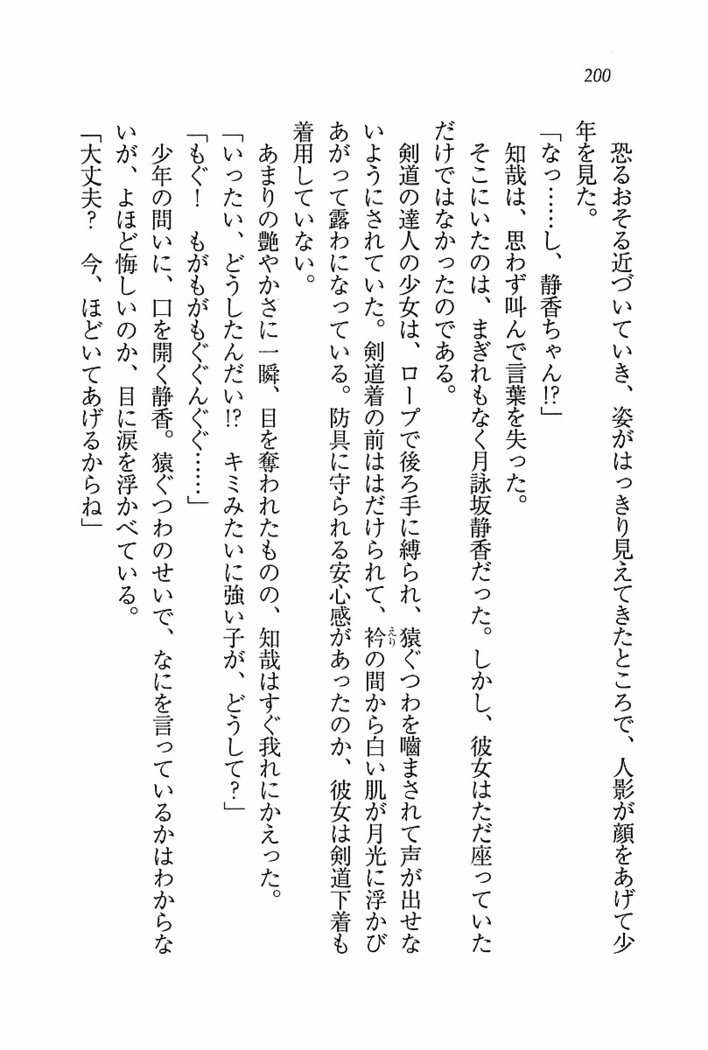 200
恐るおそる近づいていき、姿がはっきり見えてきたところで、人影が顔をあげて少
年を見た。
「なっ……し、静香ちゃん!?」
知哉は、思わず叫んで言葉を失った。
そこにいたのは、まぎれもなく月詠坂静香だった。しかし、彼女はただ座っていた
だけではなかったのである。
剣道の達人の少女は、ロープで後ろ手に縛られ、猿ぐつわを嚙まされて声が出せな
いようにされていた。剣道着の前ははだけられて、衿えりの間から白い肌が月光に浮かび
あがって露わになっている。防具に守られる安心感があったのか、彼女は剣道下着も
着用していない。
あまりの艶やかさに一瞬、目を奪われたものの、知哉はすぐ我れにかえった。
「いったい、どうしたんだい!? キミみたいに強い子が、どうして?」
「もぐ! もがもがもぐぐんぐぐ……」
少年の問いに、口を開く静香。猿ぐつわのせいで、なにを言っているかはわからな
いが、よほど悔しいのか、目に涙を浮かべている。
「大丈夫? 今、ほどいてあげるからね」